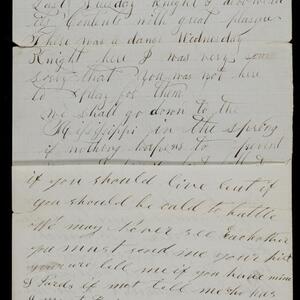 Last Tuesday Knight & 
its Contents with great plasure
There was a danc Wednesday
Knight here I was very
Sorry that you was not here
to play for them
we shall go down to the
Mississippi in the spring
if nothing hapens to prevent
if you should live but if
you should be cald to battle
We may Never see Eachother
you must send me your
tell me if you have mine
I if not tell me who has